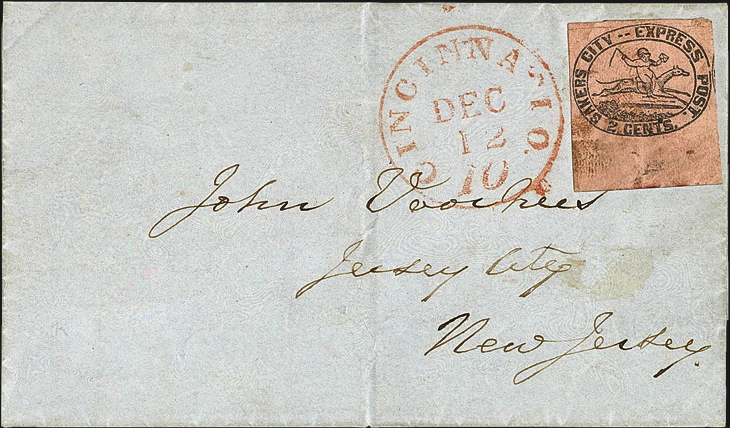 CINCINNATI O.
DEC
12
10
BAKERS CITY -- EXPRESS POST.
2 CENTS.
John Voorhees
Jersey City
New Jersey.